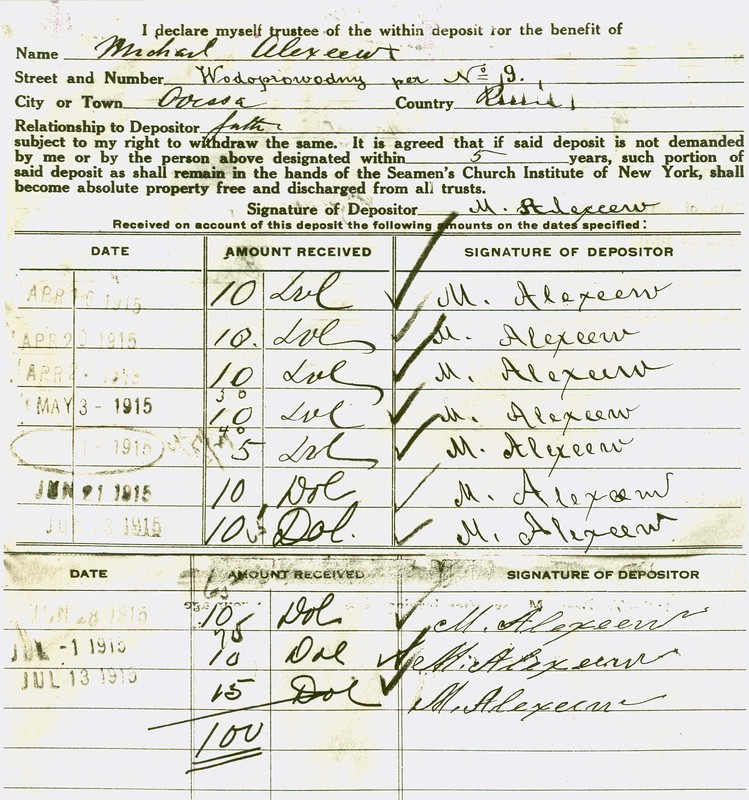 I declare myself trustee of the within deposit for the benefit of
Name Michael Alexeew
Street and Number Wodoprowodny per No 9.
City or Town Odessa Country Russia
Relationship to Depositor father
subject to my right to withdraw the same. It is agreed that if said deposit is not demanded
by me or by the person above designated within 5 years, such portion of
said deposit as shall remain in the hands of the Seamen's Church Institute of New York, shall
become absolute property free and discharged from all trusts.
Signature of Depositor M. Alexeew
Received on account of this deposit the following amounts on the dates specified:
DATE AMOUNT RECEIVED SIGNATURE OF DEPOSITOR
APR 16 1915 10 Dol M. Alexeew
APR 20 1915 10. Dol M. Alexeew
APR 1915 10 Dol M. Alexeew
30
MAY 3 - 1915 10 Dol M. Alexeew
40
1 - 1915 5 Dol M. Alexeew
JUN 21 1915 10 Dol M. Alexeew
1915 10 Dol. M. Alexeew
DATE AMOUNT RECEIVED SIGNATURE OF DEPOSITOR
65
JUN 28 1915 10 Dol M. Alexeew
75
JUL - 1 1915 10 Dol M. Alexeew
JUL 13 1915 15 Dol M. Alexeew
100